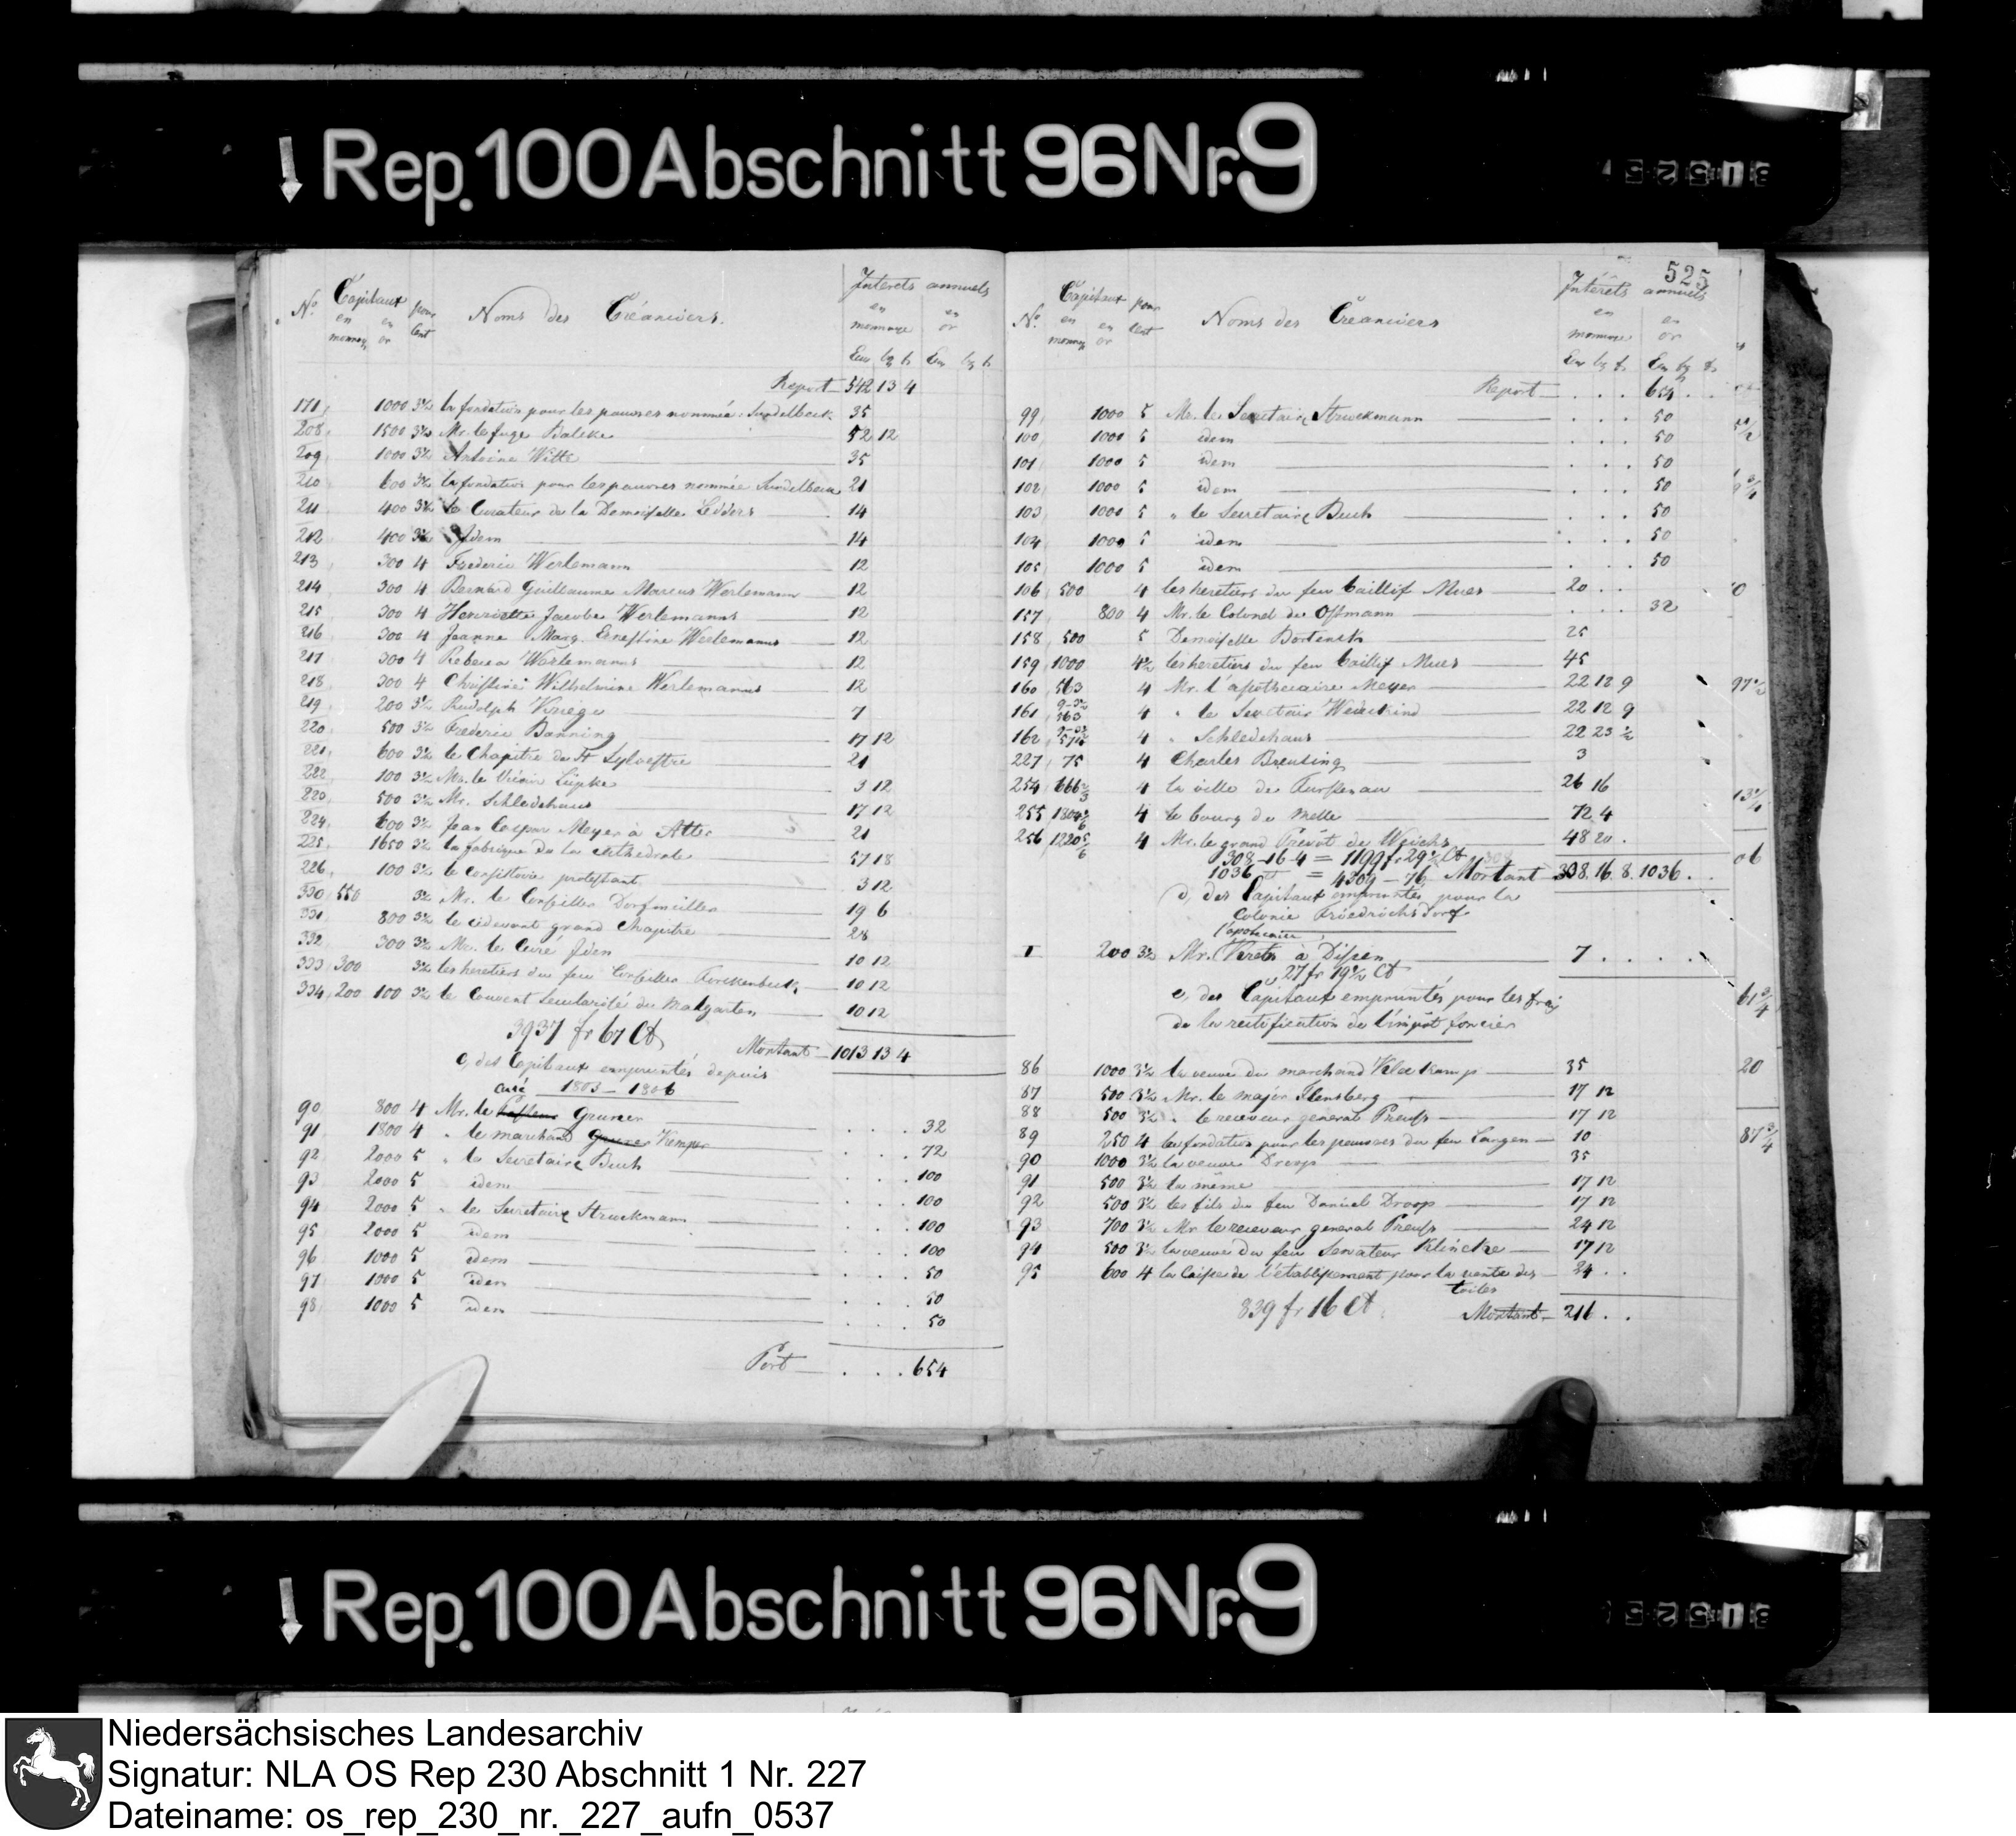 Rep. 100 Abschnitt 96 Nr. 9
No. Capitaux en monnoye en or pour Cent Noms des Créanciers. Interets annuels en monnoye en or
Report 542 13 4
171, 1000 3½ la fondation pour les pauvres nommée Sundelbeck 35
208, 1500 3½ Mr. le Juge Balcke 52 12
209, 1000 3½ Antoine Witte 35
210, 600 3½ la fondation pour les pauvres nommée Sundelbeck 21
211, 400 3½ le Curateur de la Demoiselle Ledders 14
212, 400 3½ Idem 14
213, 300 4 Frederic Werlemann 12
214, 300 4 Bernard Guillaume Marcus Werlemann 12
215, 300 4 Henriette Jacobe Werlemanns 12
216, 300 4 Jeanne Marg. Ernestine Werlemanns 12
217, 300 4 Rebecca Werlemanns 12
218, 300 4 Christine Wilhelmine Werlemanns 12
219, 200 3½ Rudolph Kriege 7
220, 500 3½ Frederic Banning 17 12
221, 600 3½ le Chapitre de St Sylvestre 21
222, 100 3½ Mr. le Vicaire Lüpke 3 12
223, 500 3½ Mr. Schledehaus 17 12
224, 600 3½ Jean Caspar Meyer à Atter 21
225, 1650 3½ la fabrique de la Cathedrale 57 18
226, 100 3½ le Consistoire protestant 3 12
330, 550 3½ Mr. le Conseiller Dorfmeiller 19 6
331, 800 3½ le cidevant grand Chapitre 28
332, 300 3½ Mr. le Curé Iden 10 12
333, 300 3½ les heretiers du feu Conseiller Forckenbeck 10 12
334, 200 100 3½ le Couvent secularisé de Malgarten 10 12
3937 fr 67 Ct
Montant 1013 13 4
c, des Capitaux empruntés depuis
1803 – 1806
90 800 4 Mr. le Curé Gruner 32
91, 1800 4 " le marchand Gruner Kemper 72
92 2000 5 " le Secretaire Buch 100
93 2000 5 idem 100
94 2000 5 " le Secretaire Struckmann 100
95 2000 5 idem 100
96 1000 5 idem 50
97 1000 5 idem 50
98, 1000 5 idem 50
Port 654
525
No. Capitaux en monnoye en or pour Cent Noms des Créanciers Intérêts annuels en monnoye en or
Report 654
99, 1000 5 Mr. le Secretaire Struckmann 50
100, 1000 5 idem 50
101, 1000 5 idem 50
102, 1000 5 idem 50
103 1000 5 " le Secretaire Buch 50
104 1000 5 idem 50
105 1000 5 idem 50
106, 500 4 les heretiers du feu baillif Mues 20
157, 800 4 Mr. le Colonel de Ossmann 32
158, 500 5 Demoiselle Bortinck 25
159, 1000 4½ les heretiers du feu baillif Mues 45
160, 563 4 Mr. l'apothecaire Meyer 22 12 9
161, 563 4 " le Secretair Wedekind 22 12 9
162, 574 4 " Schledehaus 22 23 ½
227, 75 4 Charles Breusing 3
254, 666⅔ 4 la ville de Furstenau 26 16
255 1804 4 le bourg de Melle 72 4
256, 1220 5/6 4 Mr. le grand Prévôt de Weichs 48 20
308 – 16 4 = 1199 fr 29½ Ct
1036 = 4309 – 76 Montant 308. 16. 8. 1036.
d, des Capitaux empruntés pour la
Colonie Friedrichsdorf
l'apothecaire
I 200 3½ Mr. Vereto à Dissen 7
27 fr 19½ Ct
e, des Capitaux empruntés pour les fraix
de la rectification de l'impôt foncier
86 1000 3½ la veuve du marchand Klee kamp 35
87 500 3½ Mr. le major Flensberg 17 12
88 500 3½ " le receveur general Preuss 17 12
89 250 4 la fondation pour les pauvres du feu Langen 10
90 1000 3½ la veuve Droop 35
91 500 3½ la même 17 12
92 500 3½ les fils du feu Daniel Droop 17 12
93 700 3½ Mr. le receveur general Preuss 24 12
94 500 3½ la veuve du feu Senateur Klincke 17 12
95 600 4 la Caisse de l'établissement pour la vente des toiles 24
839 fr 16 Ct
Montant 216
Rep. 100 Abschnitt 96 Nr. 9
Niedersächsisches Landesarchiv
Signatur: NLA OS Rep 230 Abschnitt 1 Nr. 227
Dateiname: os_rep_230_nr._227_aufn_0537